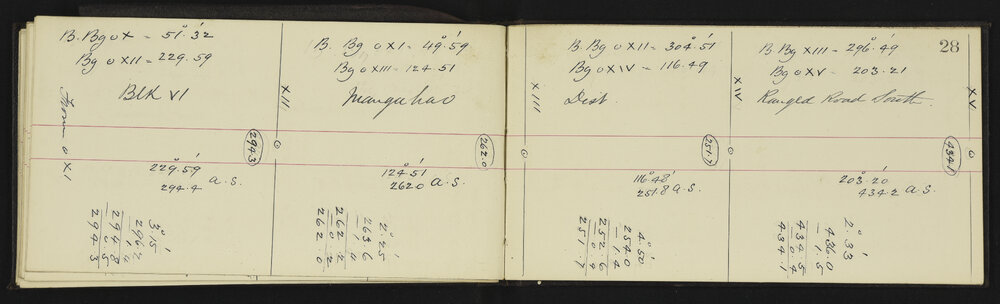 B. Bg o X = 51°.32'
Bg o XII = 229.59
Blk VI
From o XI
294.3
229°.59'
294.4 A.S.
3°.15'
296.2
1.4
294.8
0.5
294.3
XII
B. Bg o XI = 49°.59'
Bg o XIII = 124.51
Mangahao
262.0
124°.51'
262.0 A.S.
2°.25'
263.6
1.4
262.2
0.2
262.0
XIII
B. Bg o XII = 304°.51'
Bg o XIV = 116.49
Dist.
251.7
116°.48'
251.8 A.S.
4°.50'
254.0
1.4
252.6
0.9
251.7
XIV
28
B. Bg XIII = 296°.49'
Bg o XV = 203.21
Ranged Road South
XV
434.1
203°.20'
434.2 A.S.
2°.33'
436.0
1.5
434.5
0.4
434.1